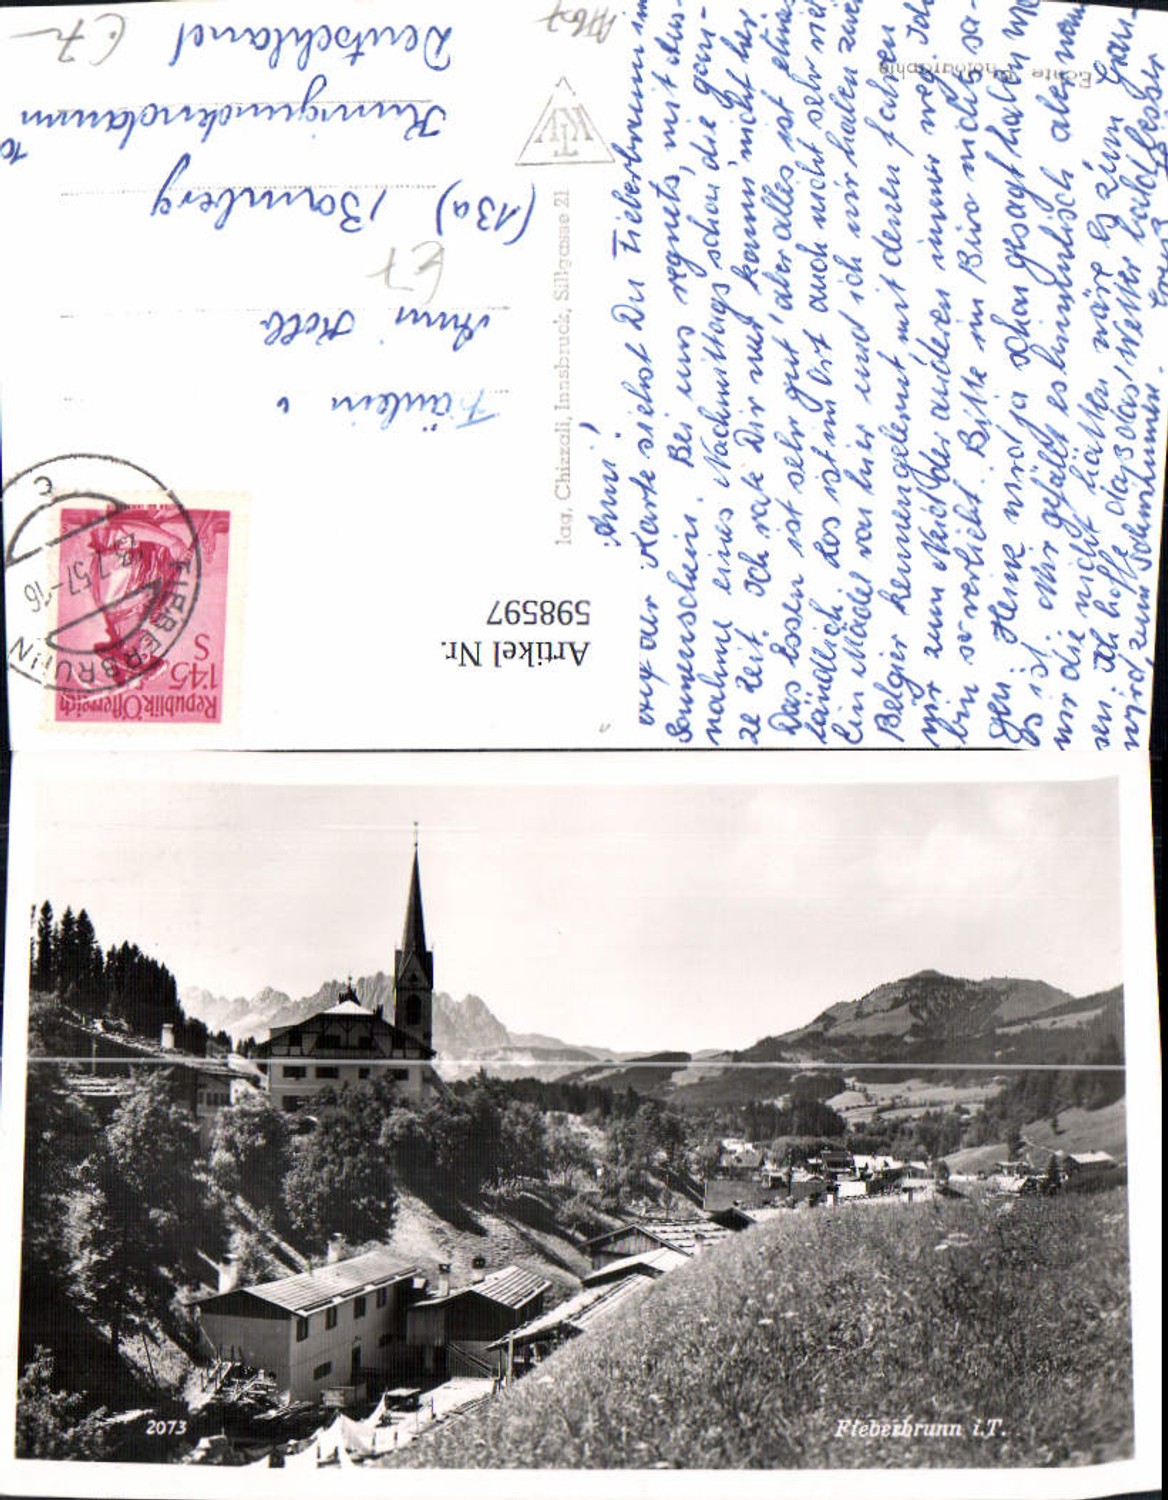 Anni!
auf der Karte siehst Du Fieberbrunn im
Sonnenschein. Bei uns regnets, mit Aus-
nahme eines Nachmittags schon die gan-
ze Zeit. Ich rate Dir nur komm nicht her
Das Essen ist sehr gut, aber alles ist etwas
ländlich. Los ist im Ort auch nicht sehr viel
Ein Mädel von hier und ich wir haben zwei
Belgier kennengelernt mit denen fahren
wir zum Neid der anderen immer weg. Ich
bin so verliebt. Bitte im Büro nichts sa-
gen. Heinz wird ja schon gesagt haben wie
es ist. Mir gefällt es himmlisch aber wenn
wir die nicht hätten wäre es zum
sen. Ich hoffe, daß das Wetter bald besser
wird, zum Schwimmen.
Echte Photographie
ALM
lag, Chizzali, Innsbruck, Sillgasse 21
Artikel Nr.
598597
Republik Österreich
1'45 S
FIEBERBRUNN
7.57-16
c
Fräulein
Anni Kolb
(13a) Bamberg
Kunigundendamm
Deutschland
2073
Fieberbrunn i.T.